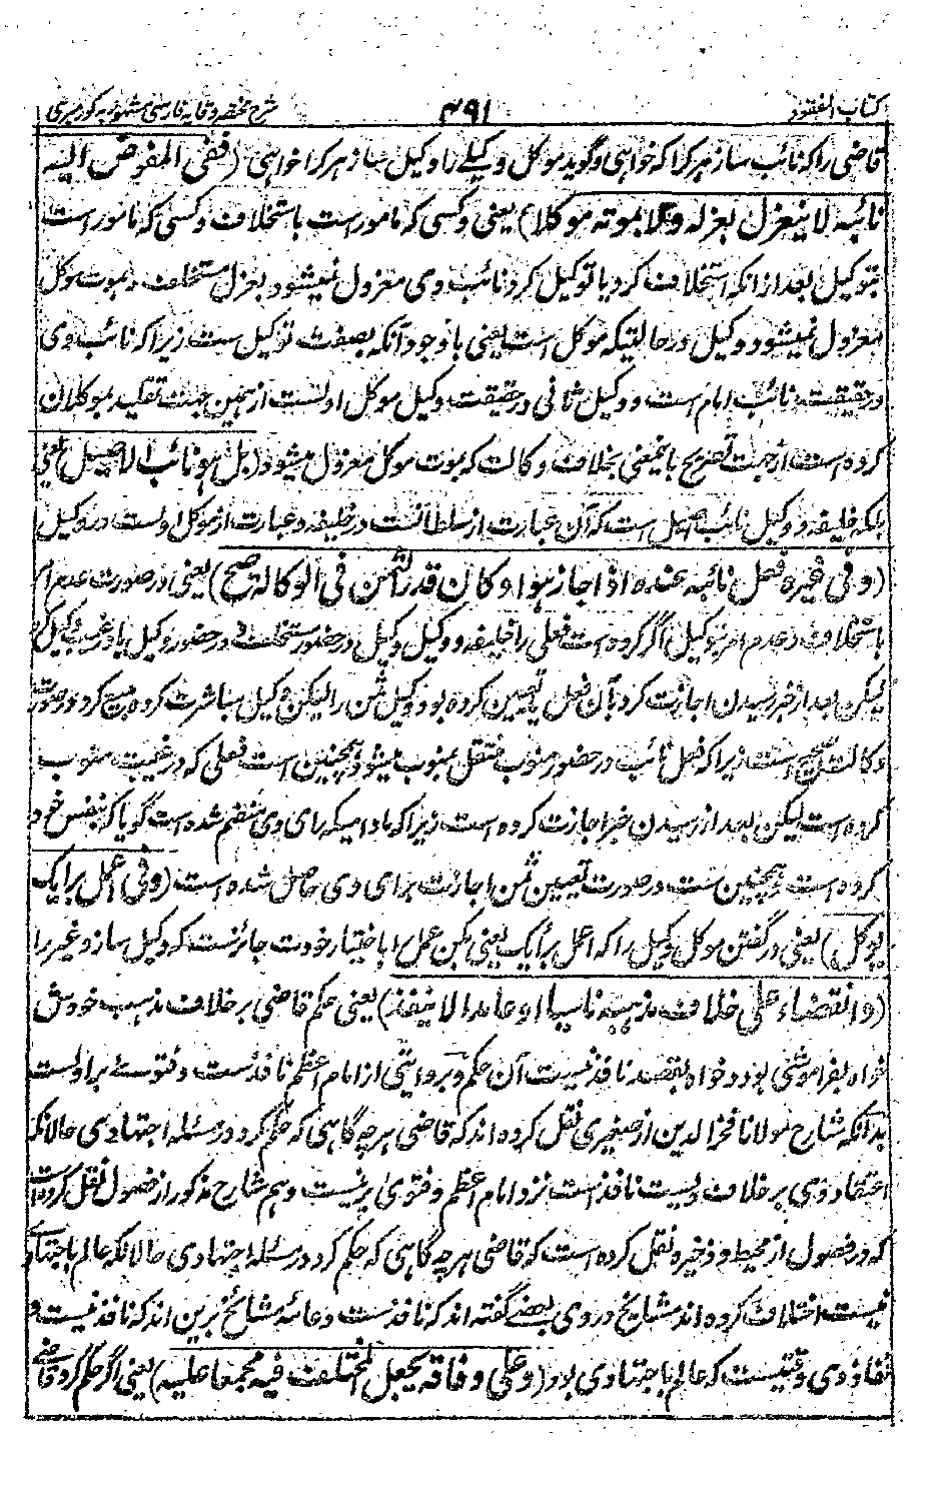 کتاب المفقود ۴۹۱ شرح مختصر وقایه فارسی مشهور به کورمیری
قاضی را که نائب ساز هر کرا که خواهی و گوید موکل وکیلے را وکیل ساز هر کرا خواهی (ففی المفوض الیه
نائبه لا ینعزل بعزله ولا بموته موکلا) یعنی وکسی که مامورست باستخلاف وکسی که مامورست
بتوکیل بعد از انکه استخلاف کرد یا توکیل کرد نائب وی معزول نمیشود بعزل مستخلف و بموت موکل
معزول نمیشود وکیل درحالتیکه موکل است یعنی باوجود آنکه بصفت توکیل ست زیرا که نائب وی
درحقیقت نائب امام است و وکیل ثانی درحقیقت وکیل موکل اولست ازهمین جهت تقلید بموکلان
کرده است ازجهت تصریح باینمعنی بخلاف وکالت که بموت موکل معزول میشود (بل هو نائب الاصیل) یعنی
بلکه خلیفه و وکیل نائب اصیل است که آن عبارت از سلطانست در خلیفه و عبارت از موکل اولست در وکیل
(وفی غیره فعل نائبه عنده اذا اجاز هو او کان قدر الثمن فی الوکالة صح) یعنی در صورت عدم امر
باستخلاف و عدم امر بتوکیل اگر کرده است فعلی را خلیفه و وکیل وکیل در حضور مستخلف و در حضور وکیل یا در غیبت وکیل کرد
لیکن بعد از خبر رسیدن اجازت کرد بآن فعل یا تعیین کرده بود وکیل ثمن را لیکن وکیل مباشرت کرده بیع کرد در صورت
وکالت صحیح است زیرا که فعل نائب در حضور منوب منتقل بمنوب میشود و همچنین است فعلی که در غیبت منوب
کرده است لیکن بعد از رسیدن خبر اجازت کرده است زیرا که مادامیکه رای وی منضم شده است گویا که بنفس خود
کرده است و همچنین ست در صورت تعیین ثمن اجازت برای وی حاصل شده است (وفی اعمل برایک
یوکل) یعنی در گفتن موکل وکیل را که اعمل برأیک یعنی بکن عمل را باختیار خودت جائزست که وکیل سازد غیر را
(والقضاء علی خلاف مذهبه ناسیا او عامدا لا ینفذ) یعنی حکم قاضی برخلاف مذهب خودش
خواه بفراموشی بود و خواه بقصد نافذ نیست آن حکم و بروایتی از امام اعظم نافذست و فتوے براولست
بدانکه شارح مولانا فخر الدین از صغیری نقل کرده اند که قاضی هرچه گاهی که حکم کرد در مسئله اجتهادی حالانکه
اعتقاد وی برخلاف ویست نافذ است نزد امام اعظم و فتوی بر نیست و هم شارح مذکور از فصول نقل کرده است
که در فصول از محیط و ذخیره نقل کرده است که قاضی هرچه گاهی که حکم کرد در مسئله اجتهادی حالانکه عالم باجتهاد
نیست اختلاف کرده اند مشایخ در وی بعضے گفته اند که نافذست و عامه مشائخ برین اند که نافذ نیست و
نفاذ وی وقتیست که عالم باجتهادی بود (وعلی وفاقه یجعل المختلف فیه مجمعا علیه) یعنی اگر حکم کرد قاضی